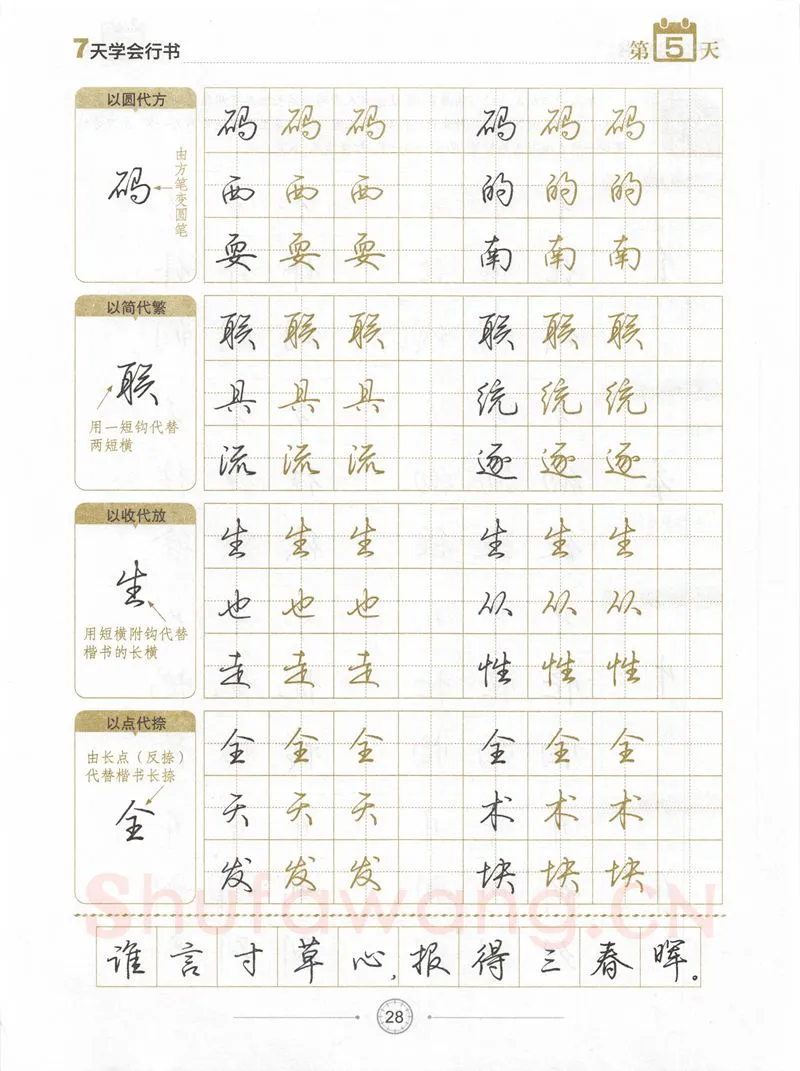 7天学会行书 第5天
以圆代方
码
由方笔变圆笔
码 码 码 码 码 码
西 西 西 的 的 的
耍 耍 耍 南 南 南
以简代繁
联
用一短钩代替
两短横
联 联 联 联 联 联
具 具 具 统 统 统
流 流 流 逐 逐 逐
以收代放
生
用短横附钩代替
楷书的长横
生 生 生 生 生 生
也 也 也 从 从 从
走 走 走 性 性 性
以点代捺
由长点（反捺）
代替楷书长捺
全
全 全 全 全 全 全
天 天 天 术 术 术
发 发 发 块 块 块
Shufawang.CN
谁言寸草心，报得三春晖。
28